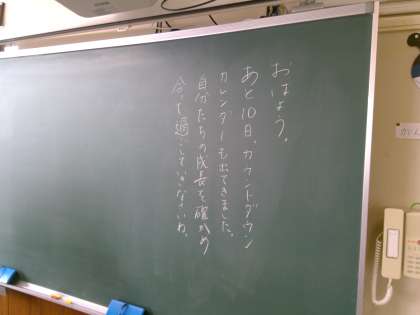 おはよう。
あと10日。カウントダウン
カレンダーも出てきました。
自分たちの成長を確かめ
合って過ごしていきなさいね。